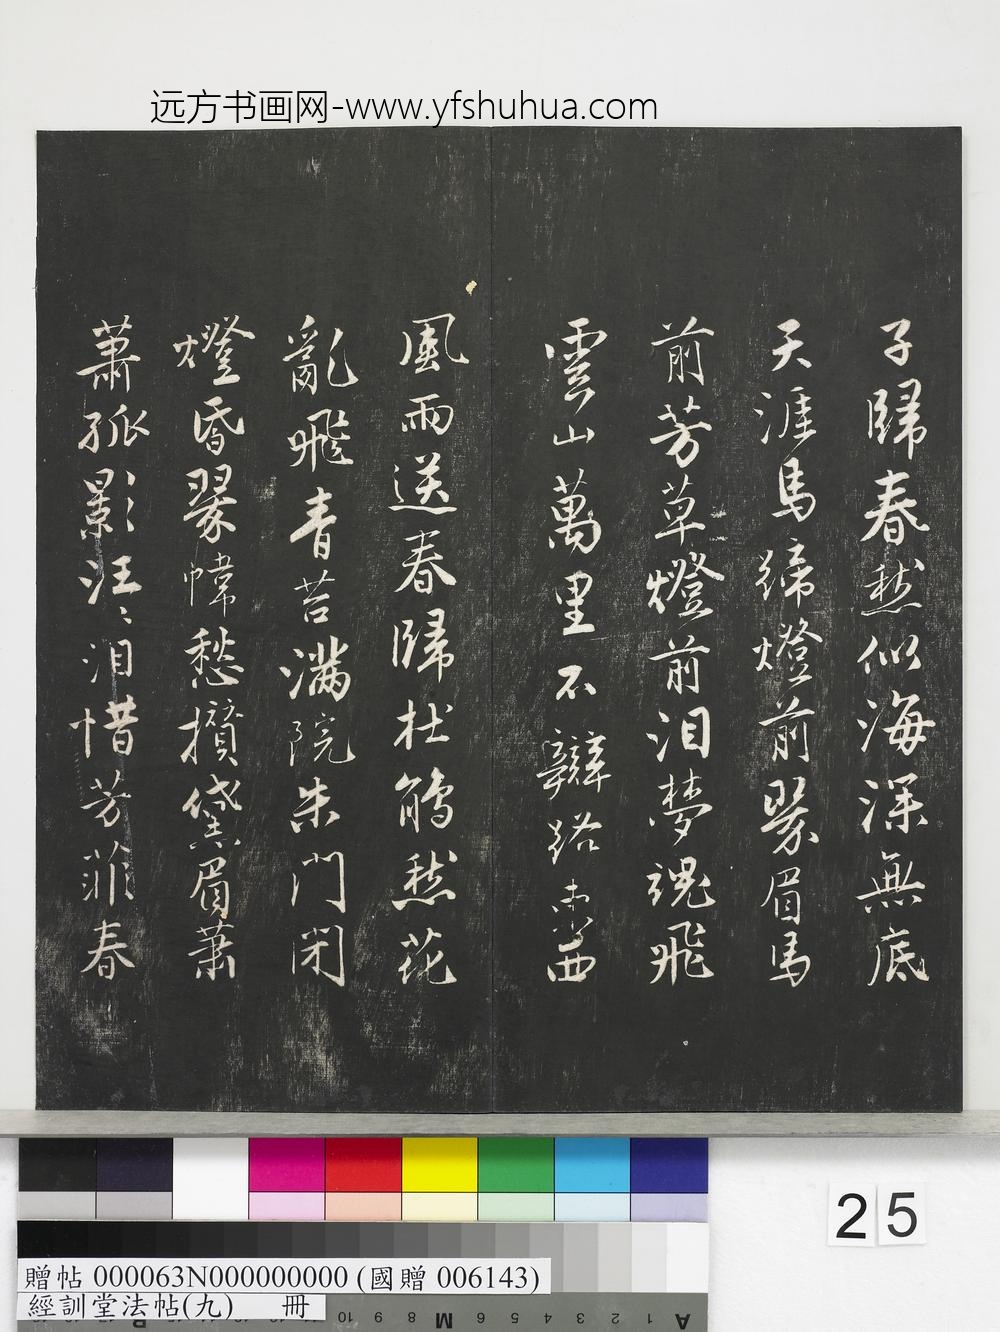 远方书画网-www.yfshuhua.com
子歸春愁似海深無底
天涯馬蹄燈前翠眉馬
前芳草燈前淚夢魂飛
雲山萬里不辯路東西
風雨送春歸杜鵑愁花
亂飛青苔滿院朱門閉
燈昏翠幃愁攢黛眉蕭
蕭孤影汪〻淚惜芳菲春
25
贈帖 000063N000000000 (國贈 006143)
經訓堂法帖(九) 冊